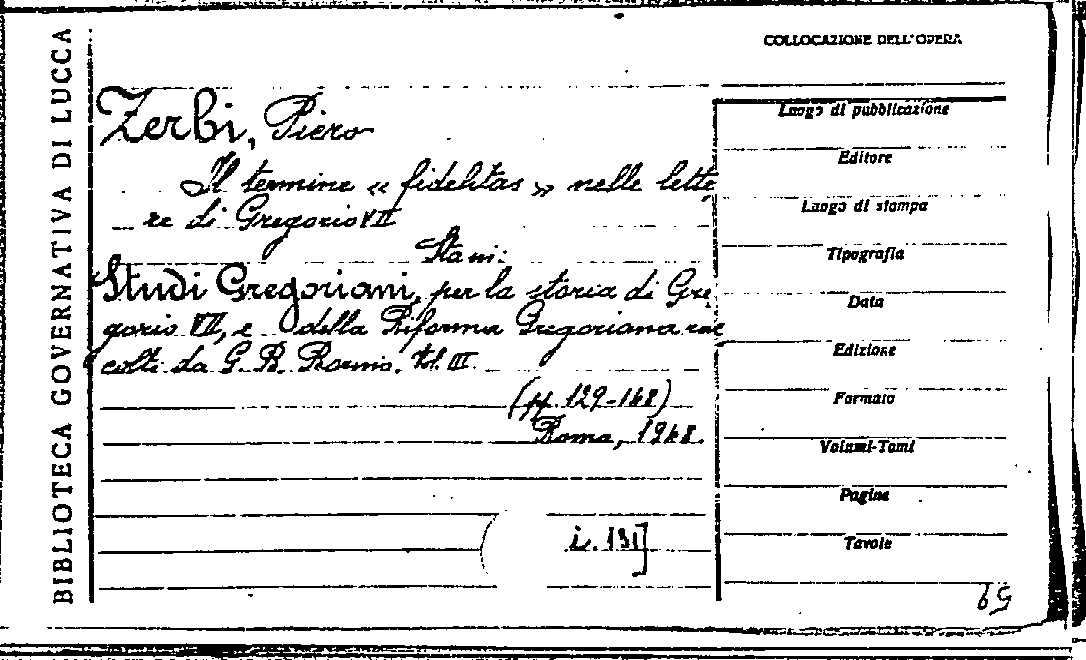 BIBLIOTECA GOVERNATIVA DI LUCCA
COLLOCAZIONE DELL'OPERA
Zerbi, Piero
Il termine « fidelitas » nelle lette
re di Gregorio VII
Sta in:
Studi Gregoriani, per la storia di Gre
gorio VII, e della Riforma Gregoriana rac
colti da G. B. Borino. Vol. III.
(pp. 129-148)
Roma, 1948.
i. 131]
Luogo di pubblicazione
Editore
Luogo di stampa
Tipografia
Data
Edizione
Formato
Volumi-Tomi
Pagine
Tavole